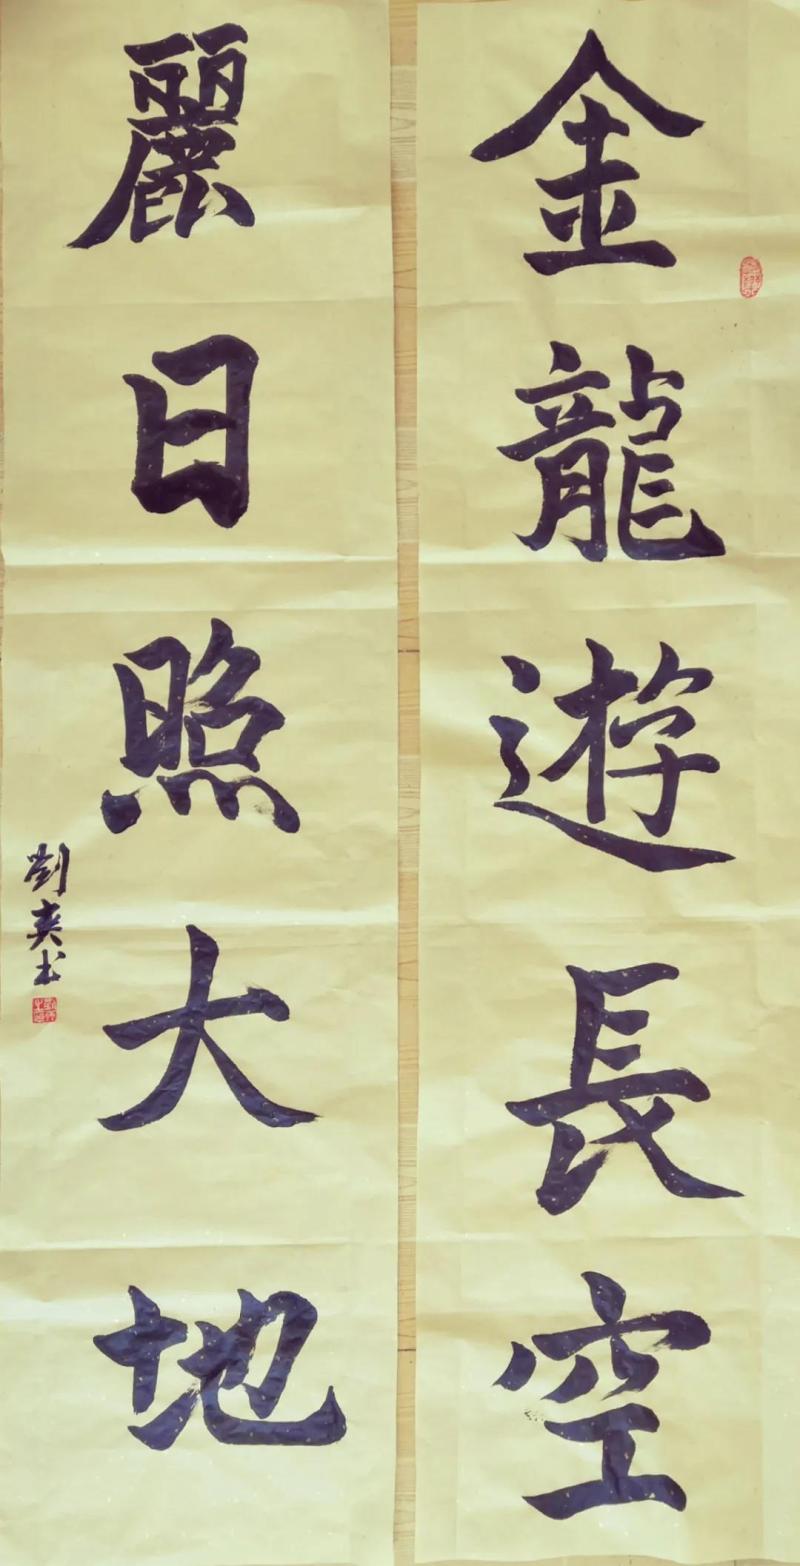 金龍遊長空
麗日照大地
劉爽书